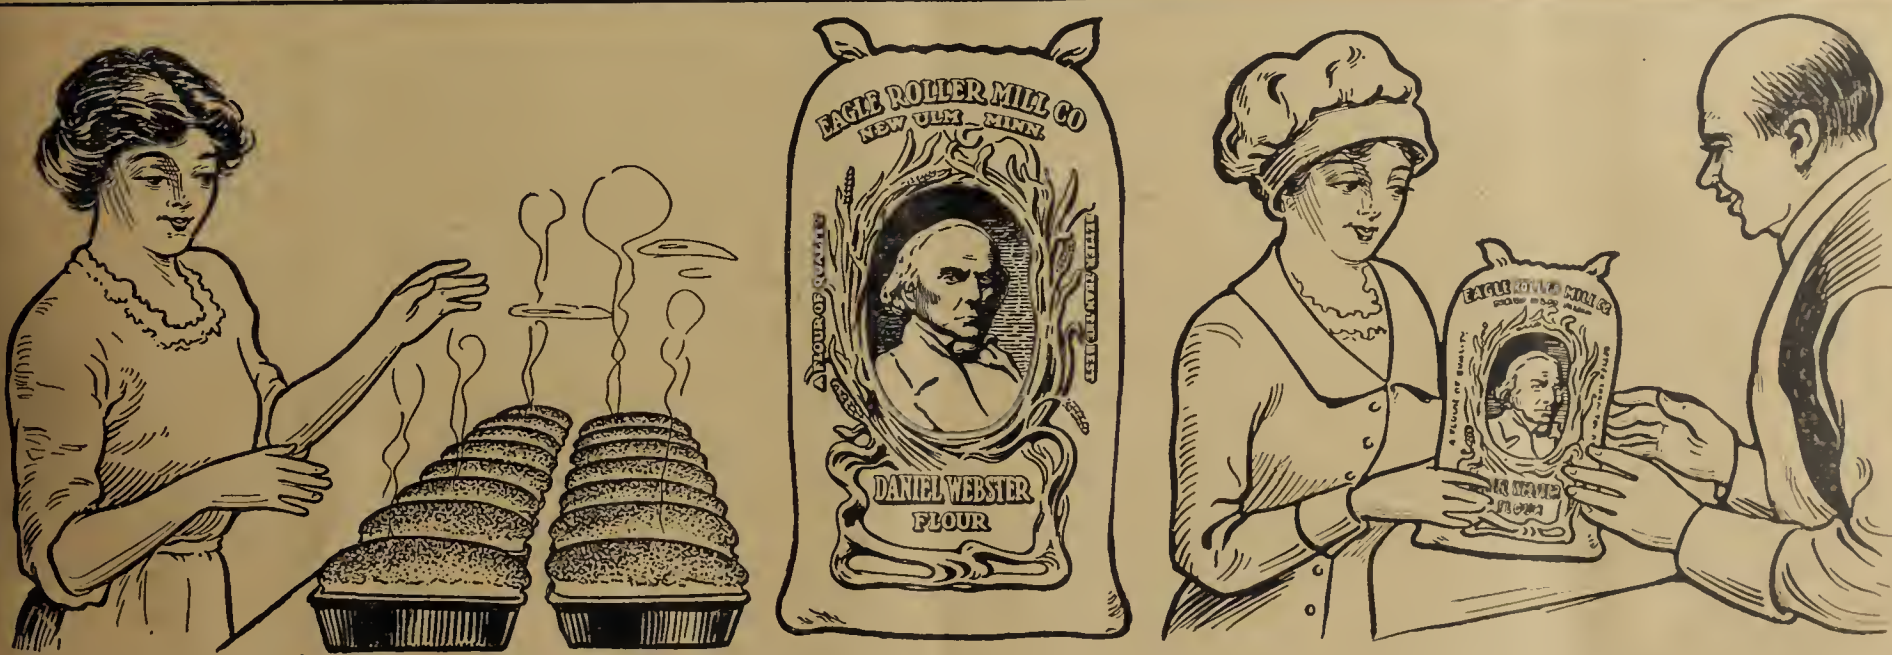 EAGLE ROLLER MILL CO
NEW ULM MINN.
A FLOUR OF QUALITY
BETTER THAN THE BEST
DANIEL WEBSTER
FLOUR
EAGLE ROLLER MILL CO
A FLOUR OF QUALITY
FLOUR